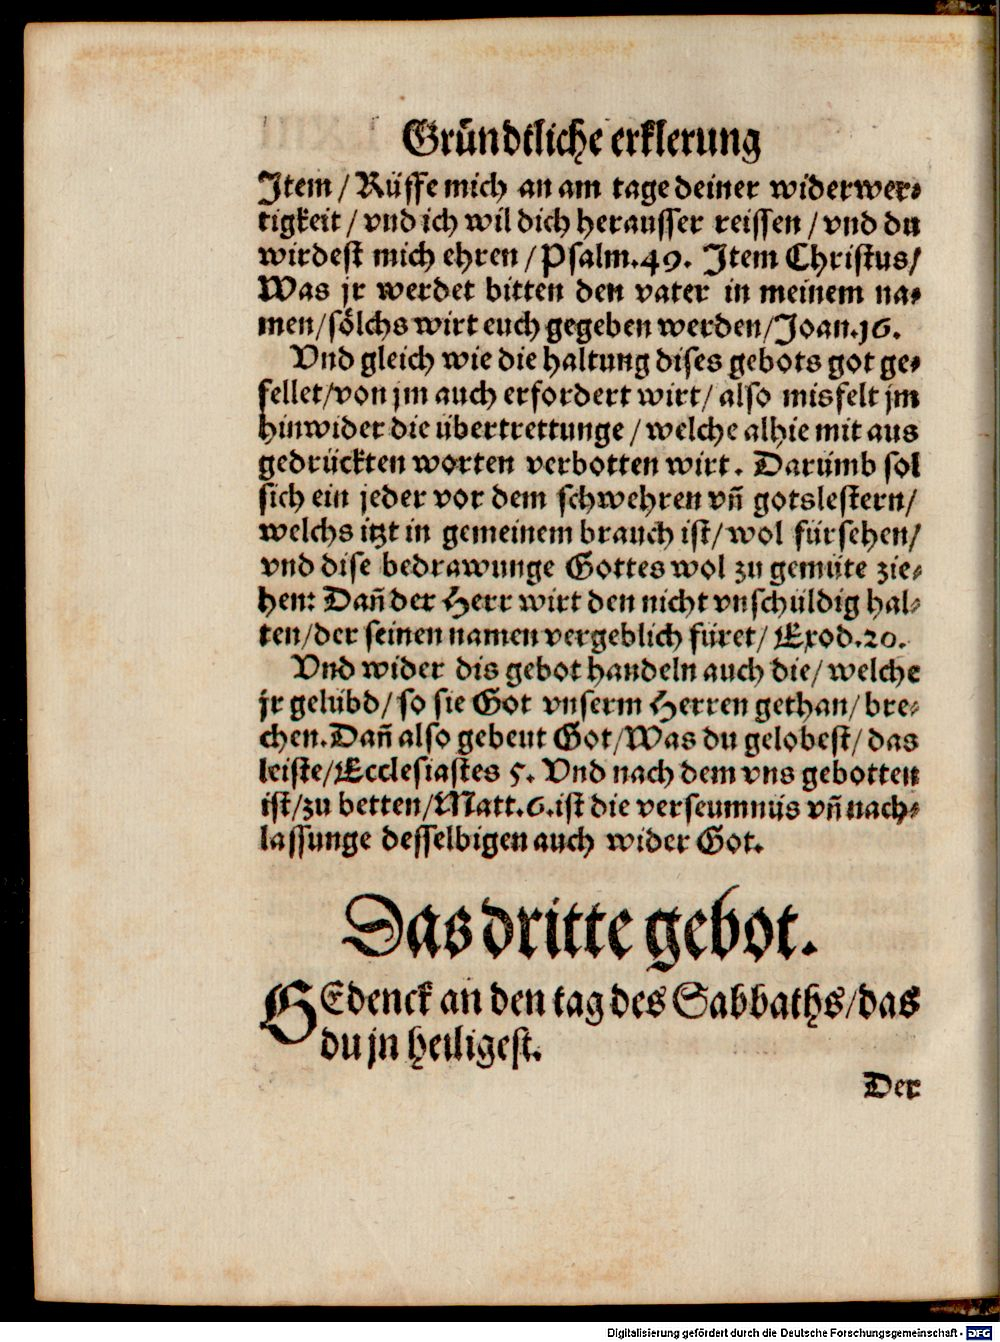 Gründtliche erklerung
Item / Rüffe mich an am tage deiner widerwer⸗
tigkeit / vnd ich wil dich herausser reissen / vnd du
wirdest mich ehren / Psalm.49. Item Christus/
Was jr werdet bitten den vater in meinem na⸗
men/sölchs wirt euch gegeben werden/Joan.16.
Vnd gleich wie die haltung dises gebots got ge⸗
fellet/von jm auch erfordert wirt/ also misfelt jm
hinwider die übertrettunge / welche alhie mit aus
gedrückten worten verbotten wirt. Darümb sol
sich ein jeder vor dem schwehren vn̄ gotslestern/
welchs itzt in gemeinem brauch ist/ wol fürsehen/
vnd dise bedrawunge Gottes wol zu gemüte zie⸗
hen: Dan̄ der Herr wirt den nicht vnschüldig hal⸗
ten/der seinen namen vergeblich füret/ Exod.20.
Vnd wider dis gebot handeln auch die/ welche
jr gelübd/ so sie Got vnserm Herren gethan/ bre⸗
chen. Dan̄ also gebeut Got/Was du gelobest/ das
leiste/Ecclesiastes 5. Vnd nach dem vns gebotten
ist/zu betten/Matt.6.ist die verseumnüs vn̄ nach⸗
lassunge desselbigen auch wider Got.
Das dritte gebot.
GEdenck an den tag des Sabbaths/das
du jn heiligest.
Der
Digitalisierung gefördert durch die Deutsche Forschungsgemeinschaft - DFG